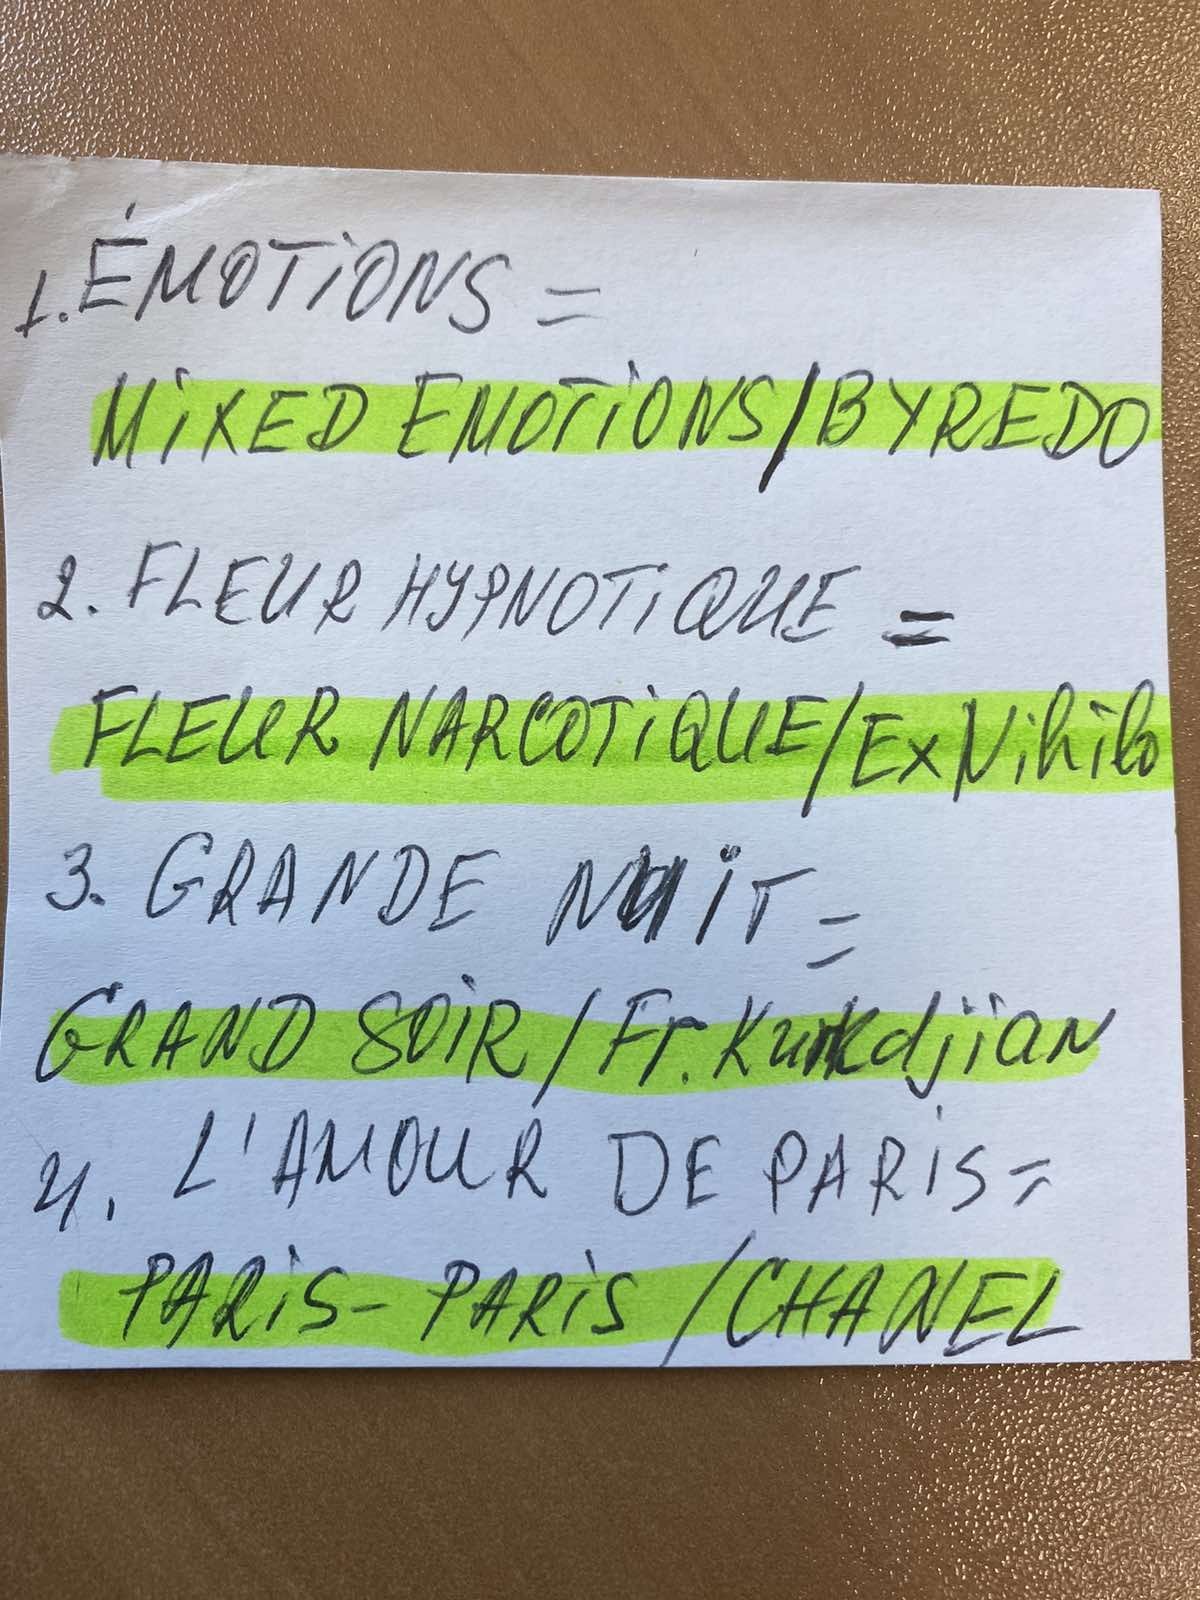 1. ÉMOTIONS =
MIXED EMOTIONS/BYREDO
2. FLEUR HYPNOTIQUE =
FLEUR NARCOTIQUE/Ex Nihilo
3. GRANDE NUIT =
GRAND SOIR/Fr. Kurkdjian
4. L'AMOUR DE PARIS =
PARIS-PARIS/CHANEL